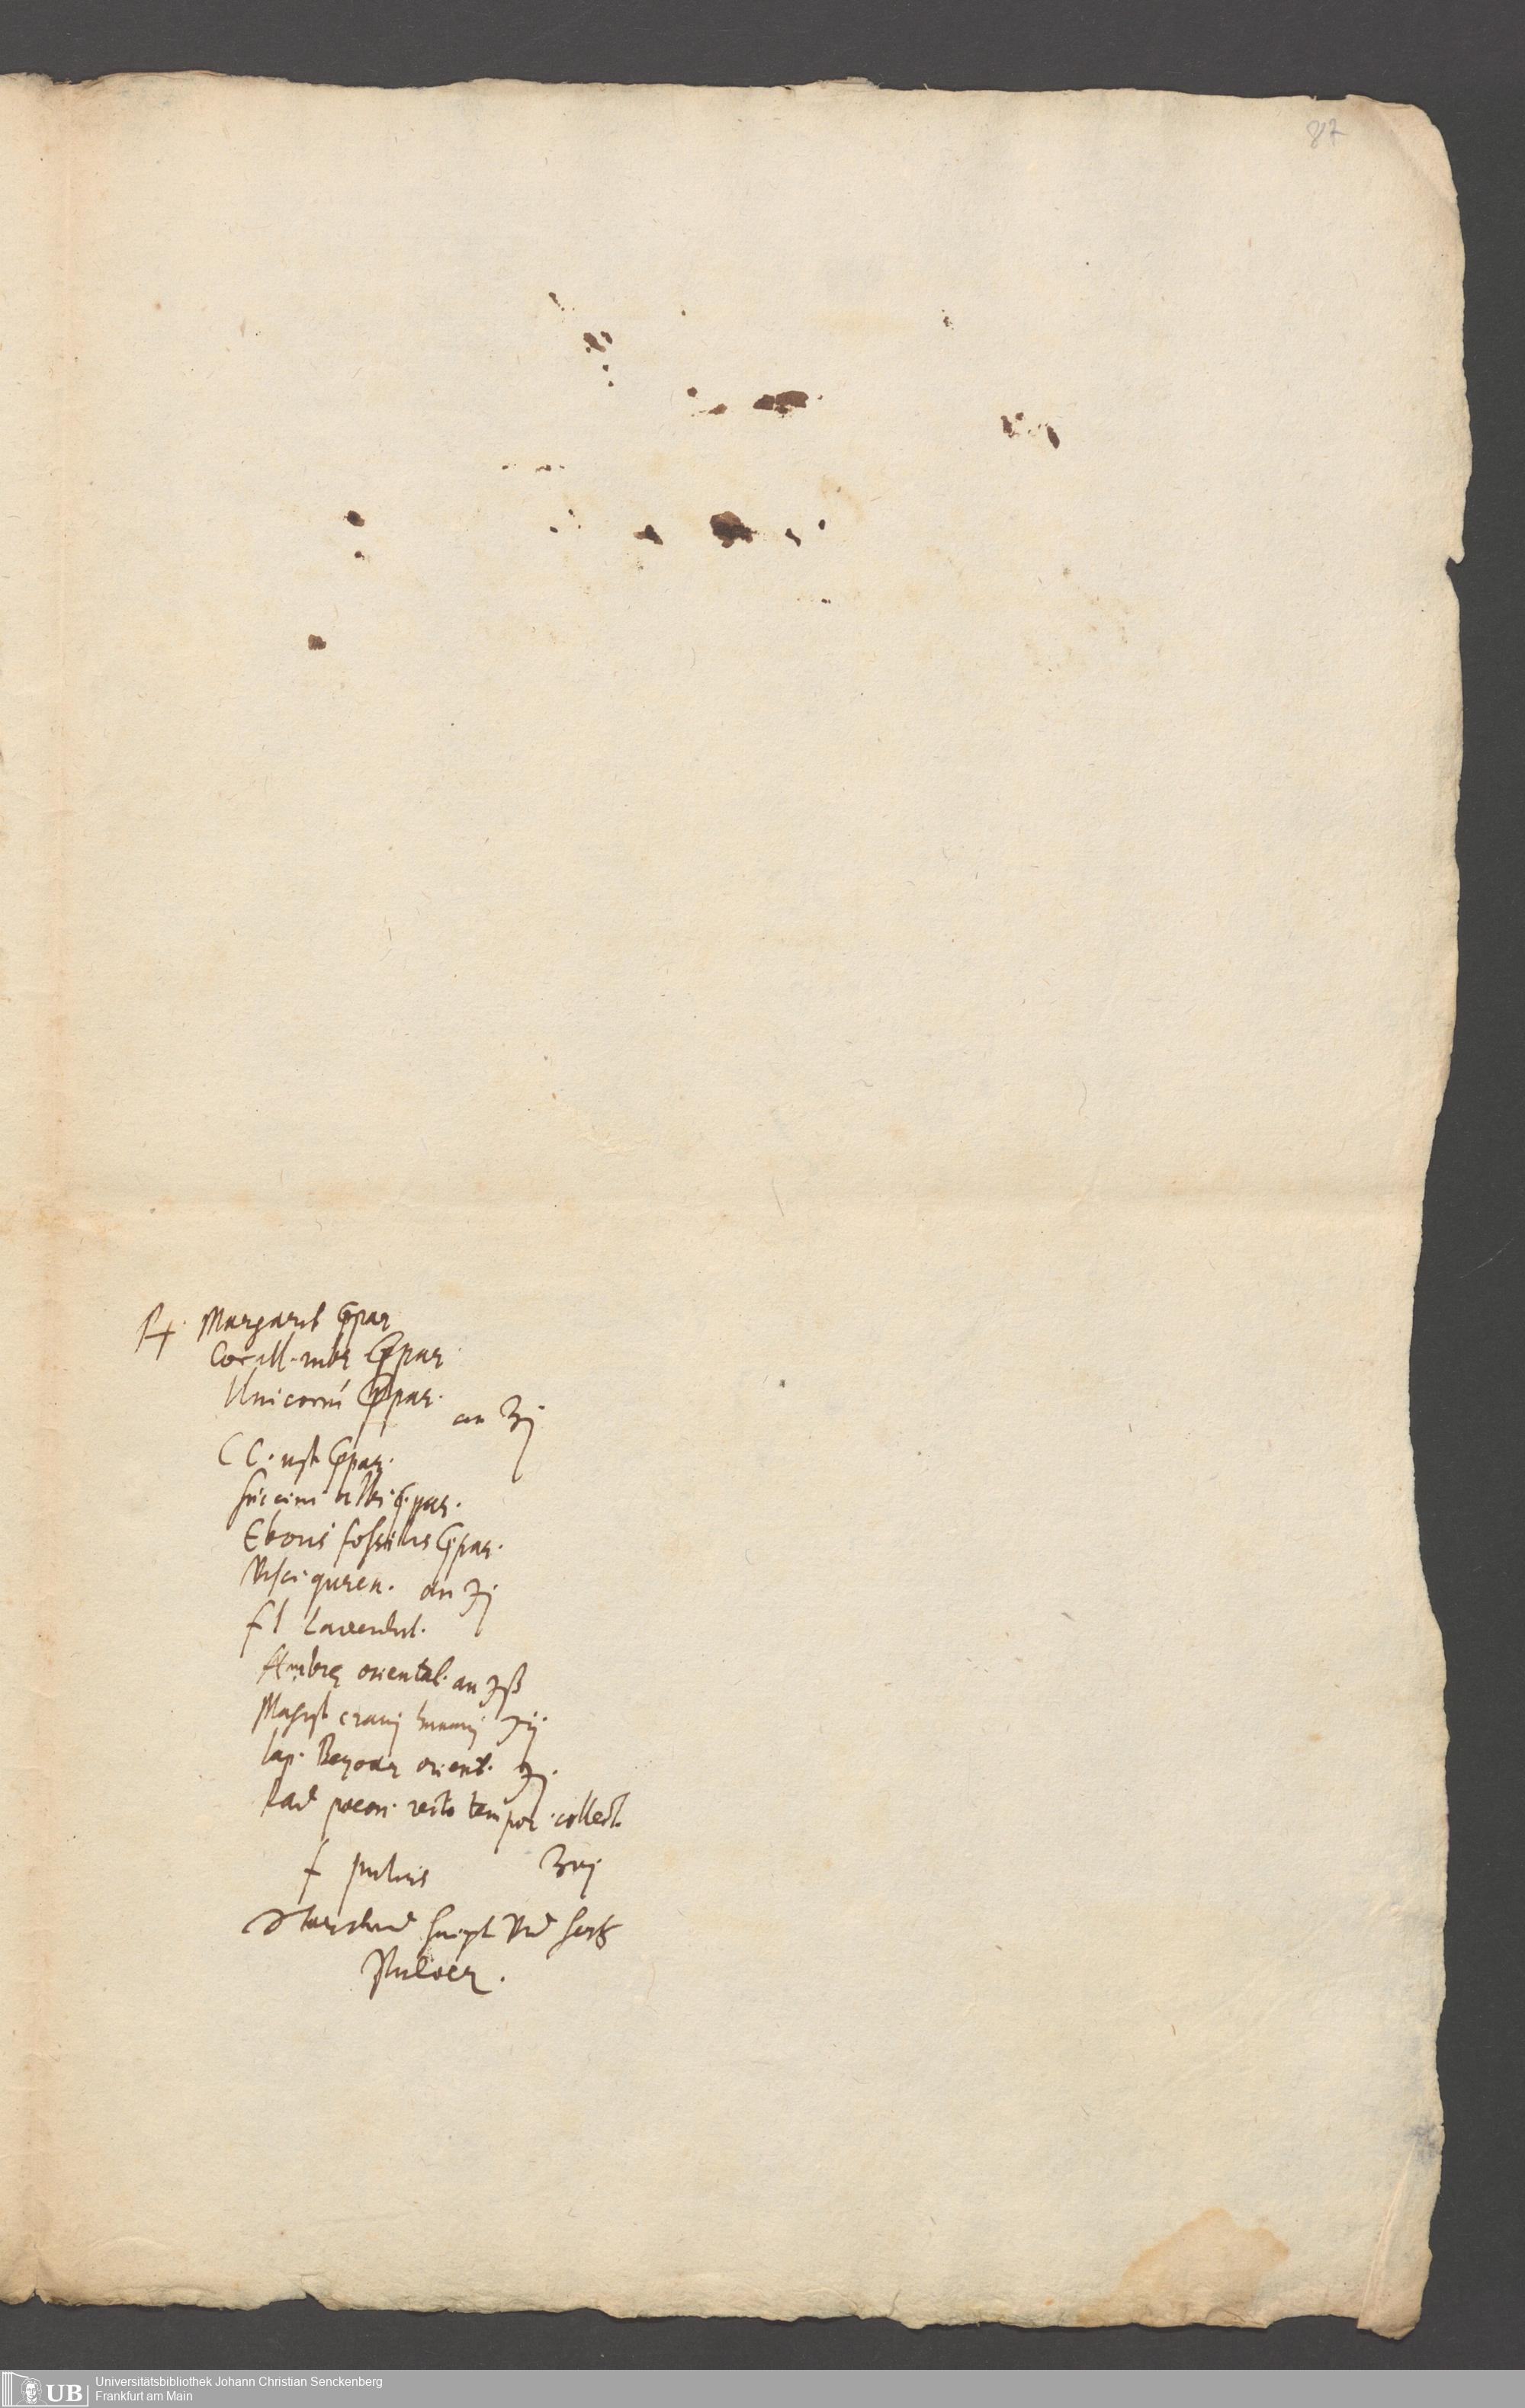 87
℞ Margarit ppar
Corall. rubr ppar
Unicornu ppar.
an ʒj
C C. ust ppar.
Succini albi ppar.
Eboris fossilis ppar.
Visci quern. an ℈j
fl Lavendul.
Ambrę oriental. an ℈ß
Magist cranij humani ℈ij
lap. Bezoar orient. ℈j.
Rad paeon. recto tempor. collect.
f pulvis ʒvj
Haupt Vnd Hertz
Pulver.
UB
Universitätsbibliothek Johann Christian Senckenberg
Frankfurt am Main